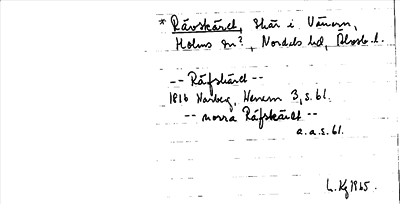 * Rävskäret, skär i Vänern,
Holms sn?, Nordals hd, Älvsb. l.
-- Räfskäret --
1916 Harberg, Venern 3, s. 61.
-- norra Räfskäret --
a.a.s. 61.
1965.